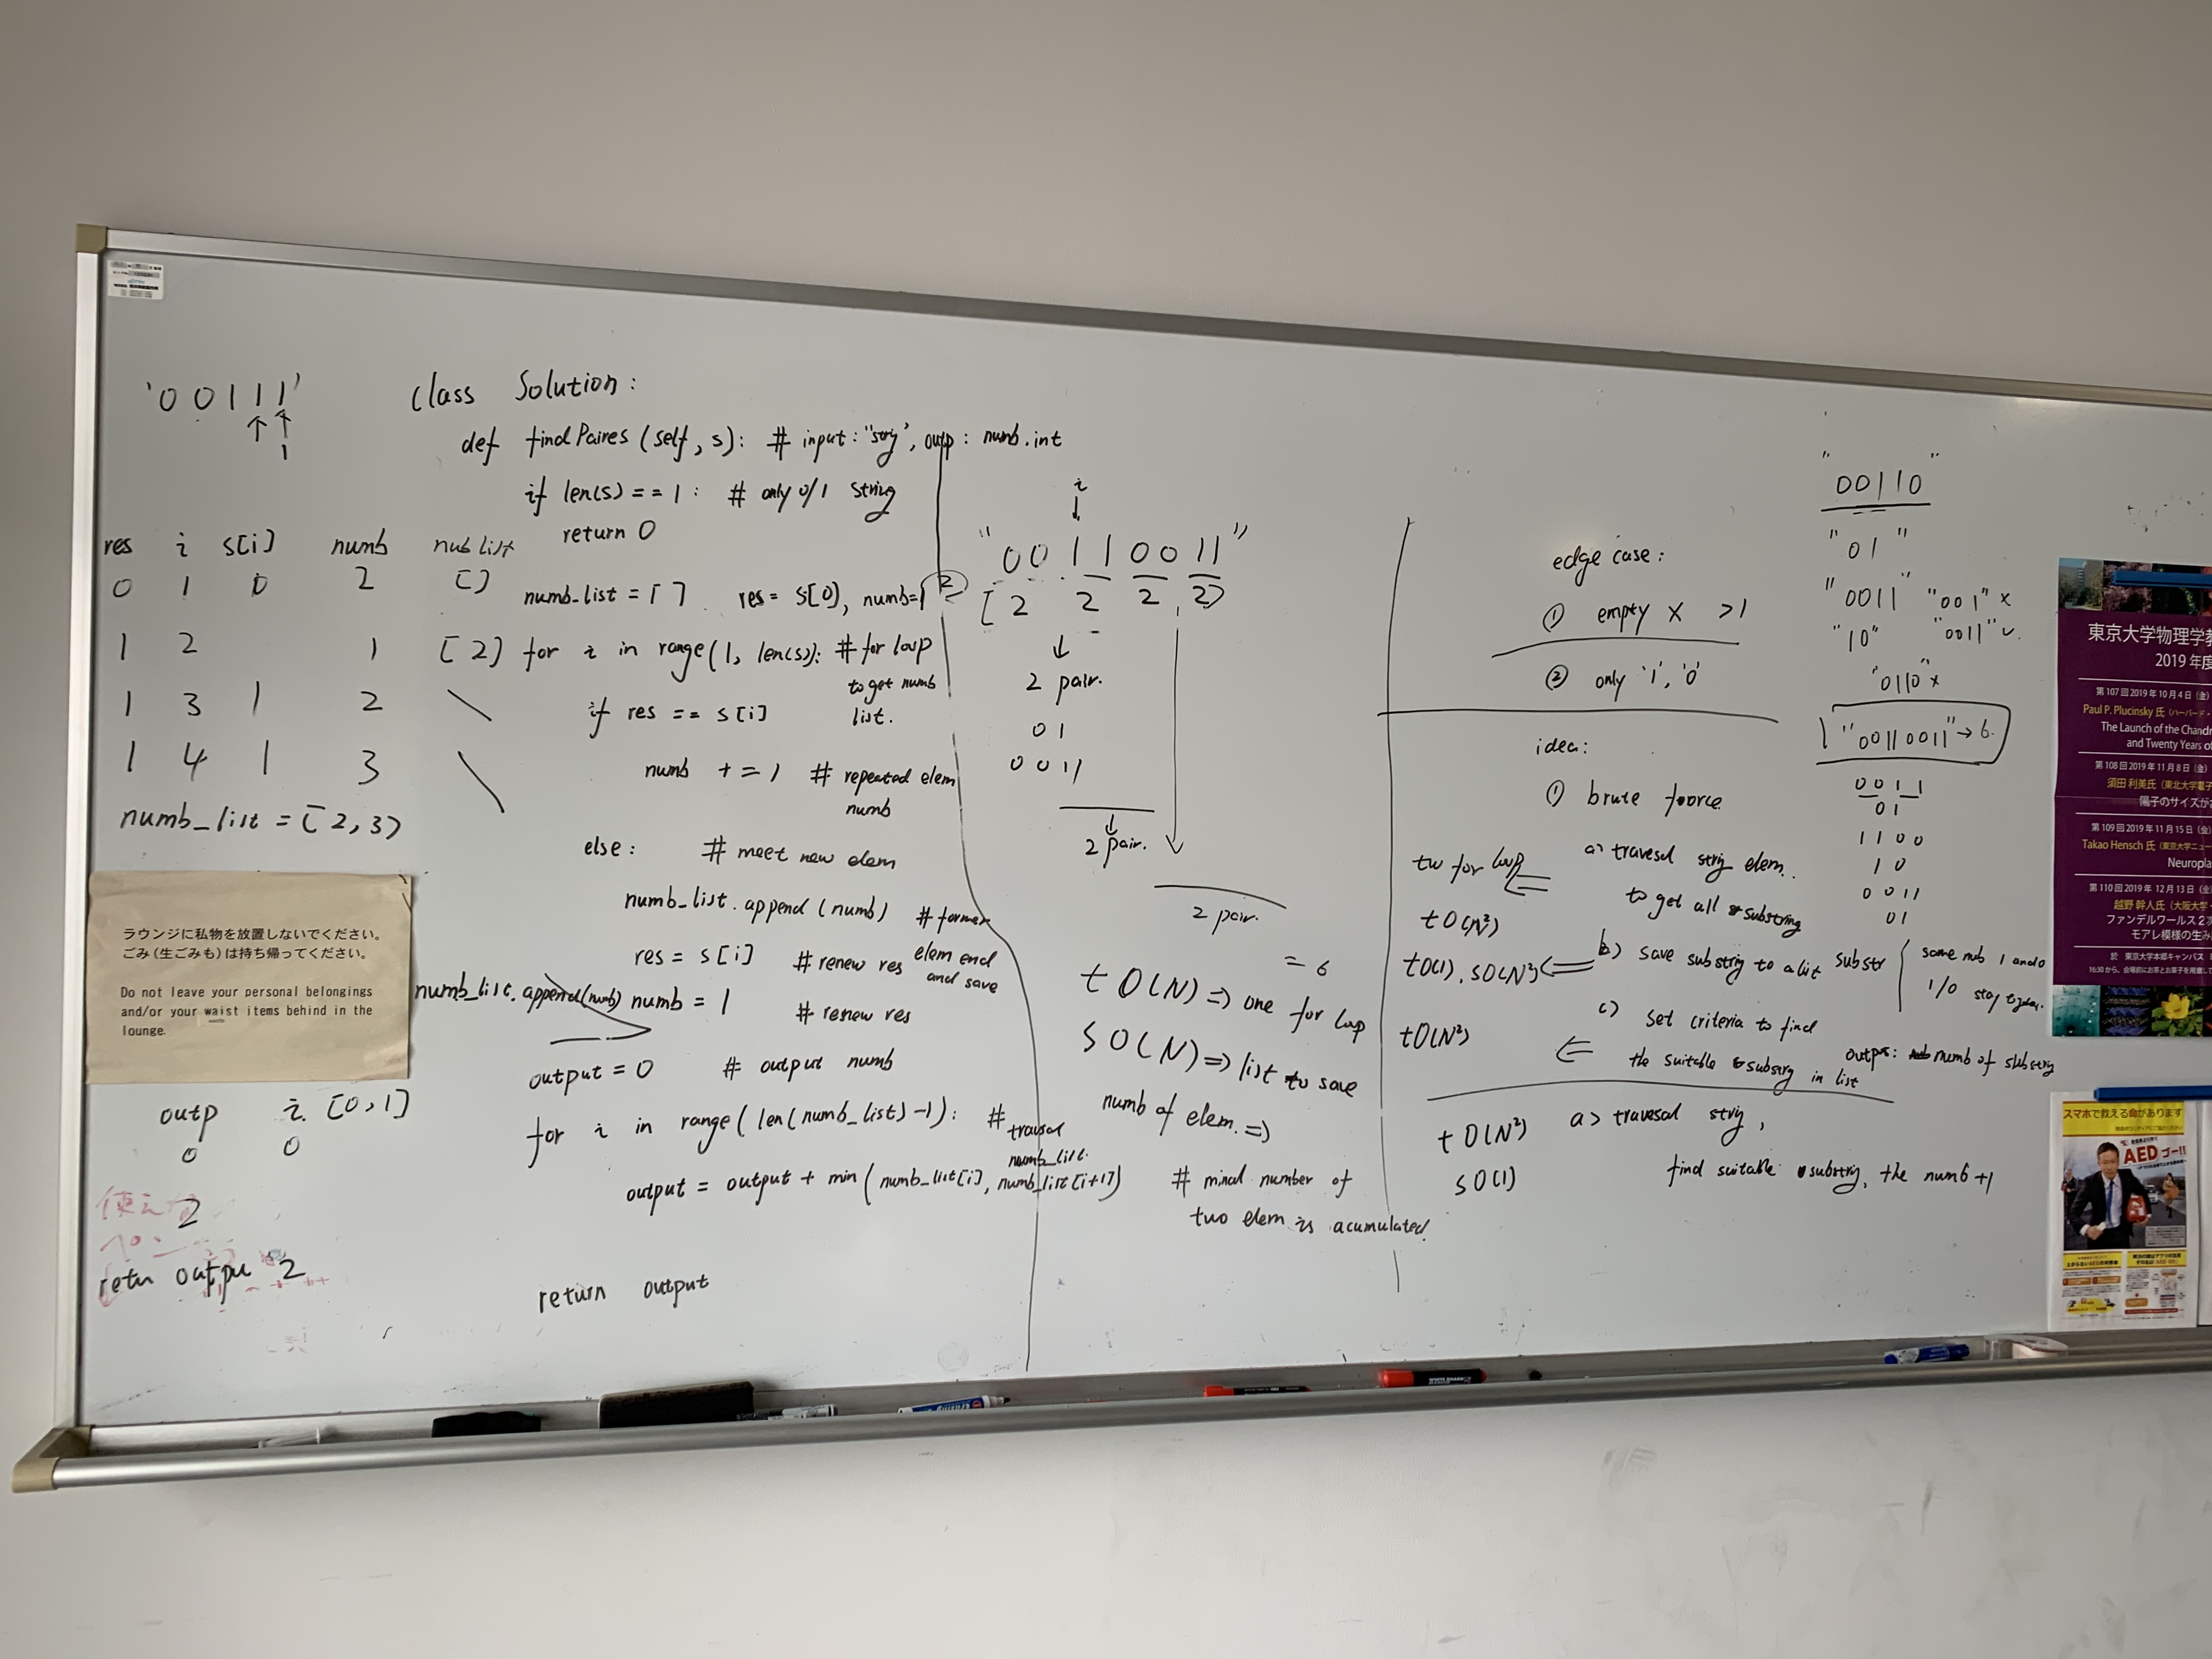 '00111'
1
res i s[i] numb nub list
0 1 0 2 []
1 2 1 [2]
1 3 1 2
1 4 1 3
numb_list = [2,3]
ラウンジに私物を放置しないでください。
ごみ(生ごみも)は持ち帰ってください。
Do not leave your personal belongings
and/or your waist items behind in the
lounge.
outp i [0,1]
0 0
2
使えな
ペン
retur outpu 2
class Solution:
def findPaires (self, s): # input: "strg", outp: numb.int
if len(s) == 1: # only 0/1 string
return 0
numb_list = [ ] res = s[0], numb=1
2
for i in range(1, len(s)): # for loop
to get numb
list.
if res == s[i]
numb += 1 # repeated elem
numb
else: # meet new elem
numb_list.append(numb) # former
elem end
and save
res = s[i] # renew res
numb = 1 # renew res
numb_list.append(numb)
output = 0 # output numb
for i in range(len(numb_list)-1): # travsal
numb_list.
output = output + min(numb_list[i], numb_list[i+1]) # minal number of
two elem is acumulated.
return output
i
"00110011"
[2 2 2 2]
2 pair.
01
0011
2 pair.
2 pair.
= 6
tO(N) => one for loop
sO(N) => list to save
numb of elem. =>
edge case:
① empty x >1
② only '1', '0'
idea:
① brute foorce
a> travesal strig elem.
to get all substring
tw for loop
tO(N²)
b) save substrig to a list
tO(1), sO(N²)
c) set criteria to find
the suitable substrg in list
tO(N²)
a> travesal strig,
find suitable substrig, the numb +1
tO(N²)
sO(1)
"00110"
"01"
"0011" "001" x
"10" "0011" ✓
"0110" x
"00110011" → 6.
0011
01
1100
10
0011
01
substr
same nub 1 and 0
1/0 stay togeter.
output: numb of substrig
東京大学物理学教
2019 年度
第 107 回 2019 年 10 月 4 日 (金)
Paul P. Plucinsky 氏 (ハーバード・
The Launch of the Chandr
and Twenty Years of
第 108 回 2019 年 11 月 8 日 (金)
須田 利美氏 (東北大学電子
陽子のサイズが
第 109 回 2019 年 11 月 15 日 (金)
Takao Hensch 氏 (東京大学ニュー
Neuropla
第 110 回 2019 年 12 月 13 日 (金)
越野 幹人氏 (大阪大学・
ファンデルワールス 2 次
モアレ模様の生み
於 東京大学本郷キャンパス
スマホで救える命があります
AED ゴー!!